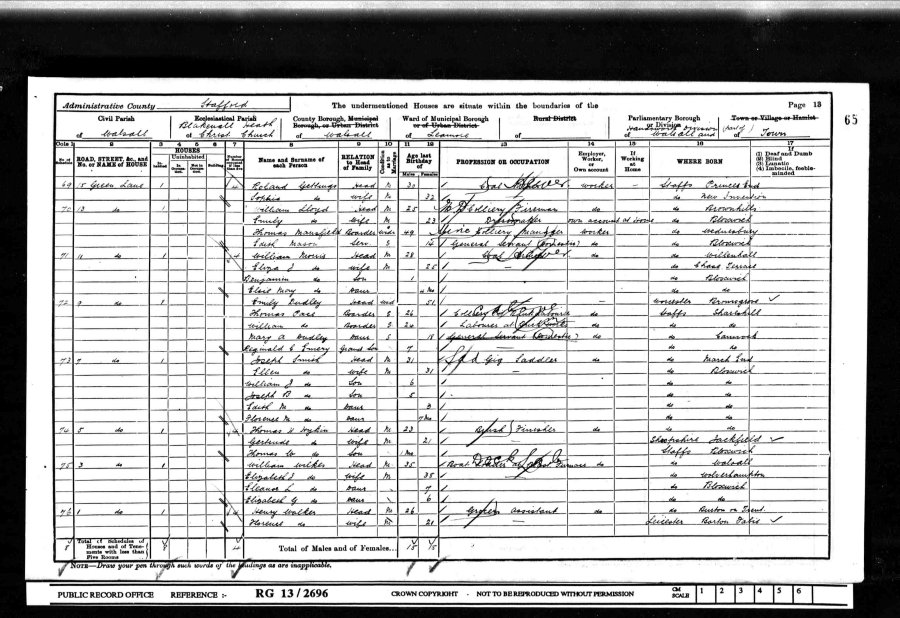 Administrative County Stafford
The undermentioned Houses are situate within the boundaries of the
Page 13
65
Civil Parish of Walsall
Ecclesiastical Parish of Blakenall Heath Christ Church
County Borough, Municipal Borough, or Urban District of Walsall
Ward of Municipal Borough or of Urban District of Leamore
Rural District of
Parliamentary Borough or Division of Walsall and
Town or Village or Hamlet of Town
Cols 1 2 3 4 5 6 7 8 9 10 11 12 13 14 15 16 17
ROAD, STREET, &c., and No. or NAME of HOUSE
HOUSES Inhabited Uninhabited In Occupation Not in Occupation Building
Name and Surname of each Person
RELATION to Head of Family
Condition as to Marriage
Age last Birthday of Males Females
PROFESSION OR OCCUPATION
Employer, Worker, or Own account
If Working at Home
WHERE BORN
If (1) Deaf and Dumb (2) Blind (3) Lunatic (4) Imbecile, feeble-minded
69 15 Green Lane 1 4 Roland Head M 30 Coal worker Staffs Princes End
Sophia do wife M 32 do New Invention
70 13 do 1 William Lloyd Head M 25 Colliery Fireman do do Brownhills
Emily do wife M 23 Dressmaker own account at home do Bloxwich
Thomas Mansfield Boarder 49 Colliery Manager worker do Wednesbury
Edith Mason Serv. S 14 General Servant (Domestic) do do Bloxwich
71 11 do 1 4 William Morris Head M 28 Coal do do Willenhall
Eliza J do wife M 25 — do Chase Terrace
Benjamin do Son 1 do Bloxwich
Elsie May do Daur 4 mo do do
72 9 do 1 Emily Dudley Head wid 51 — Worcester Bromsgrove
Thomas Boarder S 26 Labourer do Staffs Shareshill
William do Boarder S 24 Labourer at do do do
Mary A Dudley Daur S 18 General Servant (Domestic) do do Cannock
Reginald E Emery Grand Son 7 do do
73 7 do 1 Joseph Smith Head M 31 Gig Saddler do do March End
Ellen do wife M 31 — do Bloxwich
William J do Son 6 do do
Joseph B do Son 5 do do
Edith M do Daur 3 do do
Florence M do Daur 7 mo do do
74 5 do 1 4 Thomas H Head M 23 Brush Finisher do do do
Gertrude do wife M 21 Shropshire Jackfield
Thomas W do Son 1 mo Staffs Bloxwich
75 3 do 1 William Head M 35 Boat Furnace do do Walsall
Elizabeth J do wife M 35 do Wolverhampton
Eleanor L do Daur 7 do Bloxwich
Elizabeth G do Daur 6 do do
76 1 do 1 4 Henry Walker Head M 26 Grocers assistant do do Burton on Trent
Florence do wife M 21 Leicester Barton
8 Total of Schedules of Houses and of Tenements with less than Five Rooms 8 4 Total of Males and of Females... 15 15
NOTE—Draw your pen through such words of the headings as are inapplicable.
PUBLIC RECORD OFFICE REFERENCE :- RG 13/2696 CROWN COPYRIGHT - NOT TO BE REPRODUCED WITHOUT PERMISSION CM SCALE 1 2 3 4 5 6